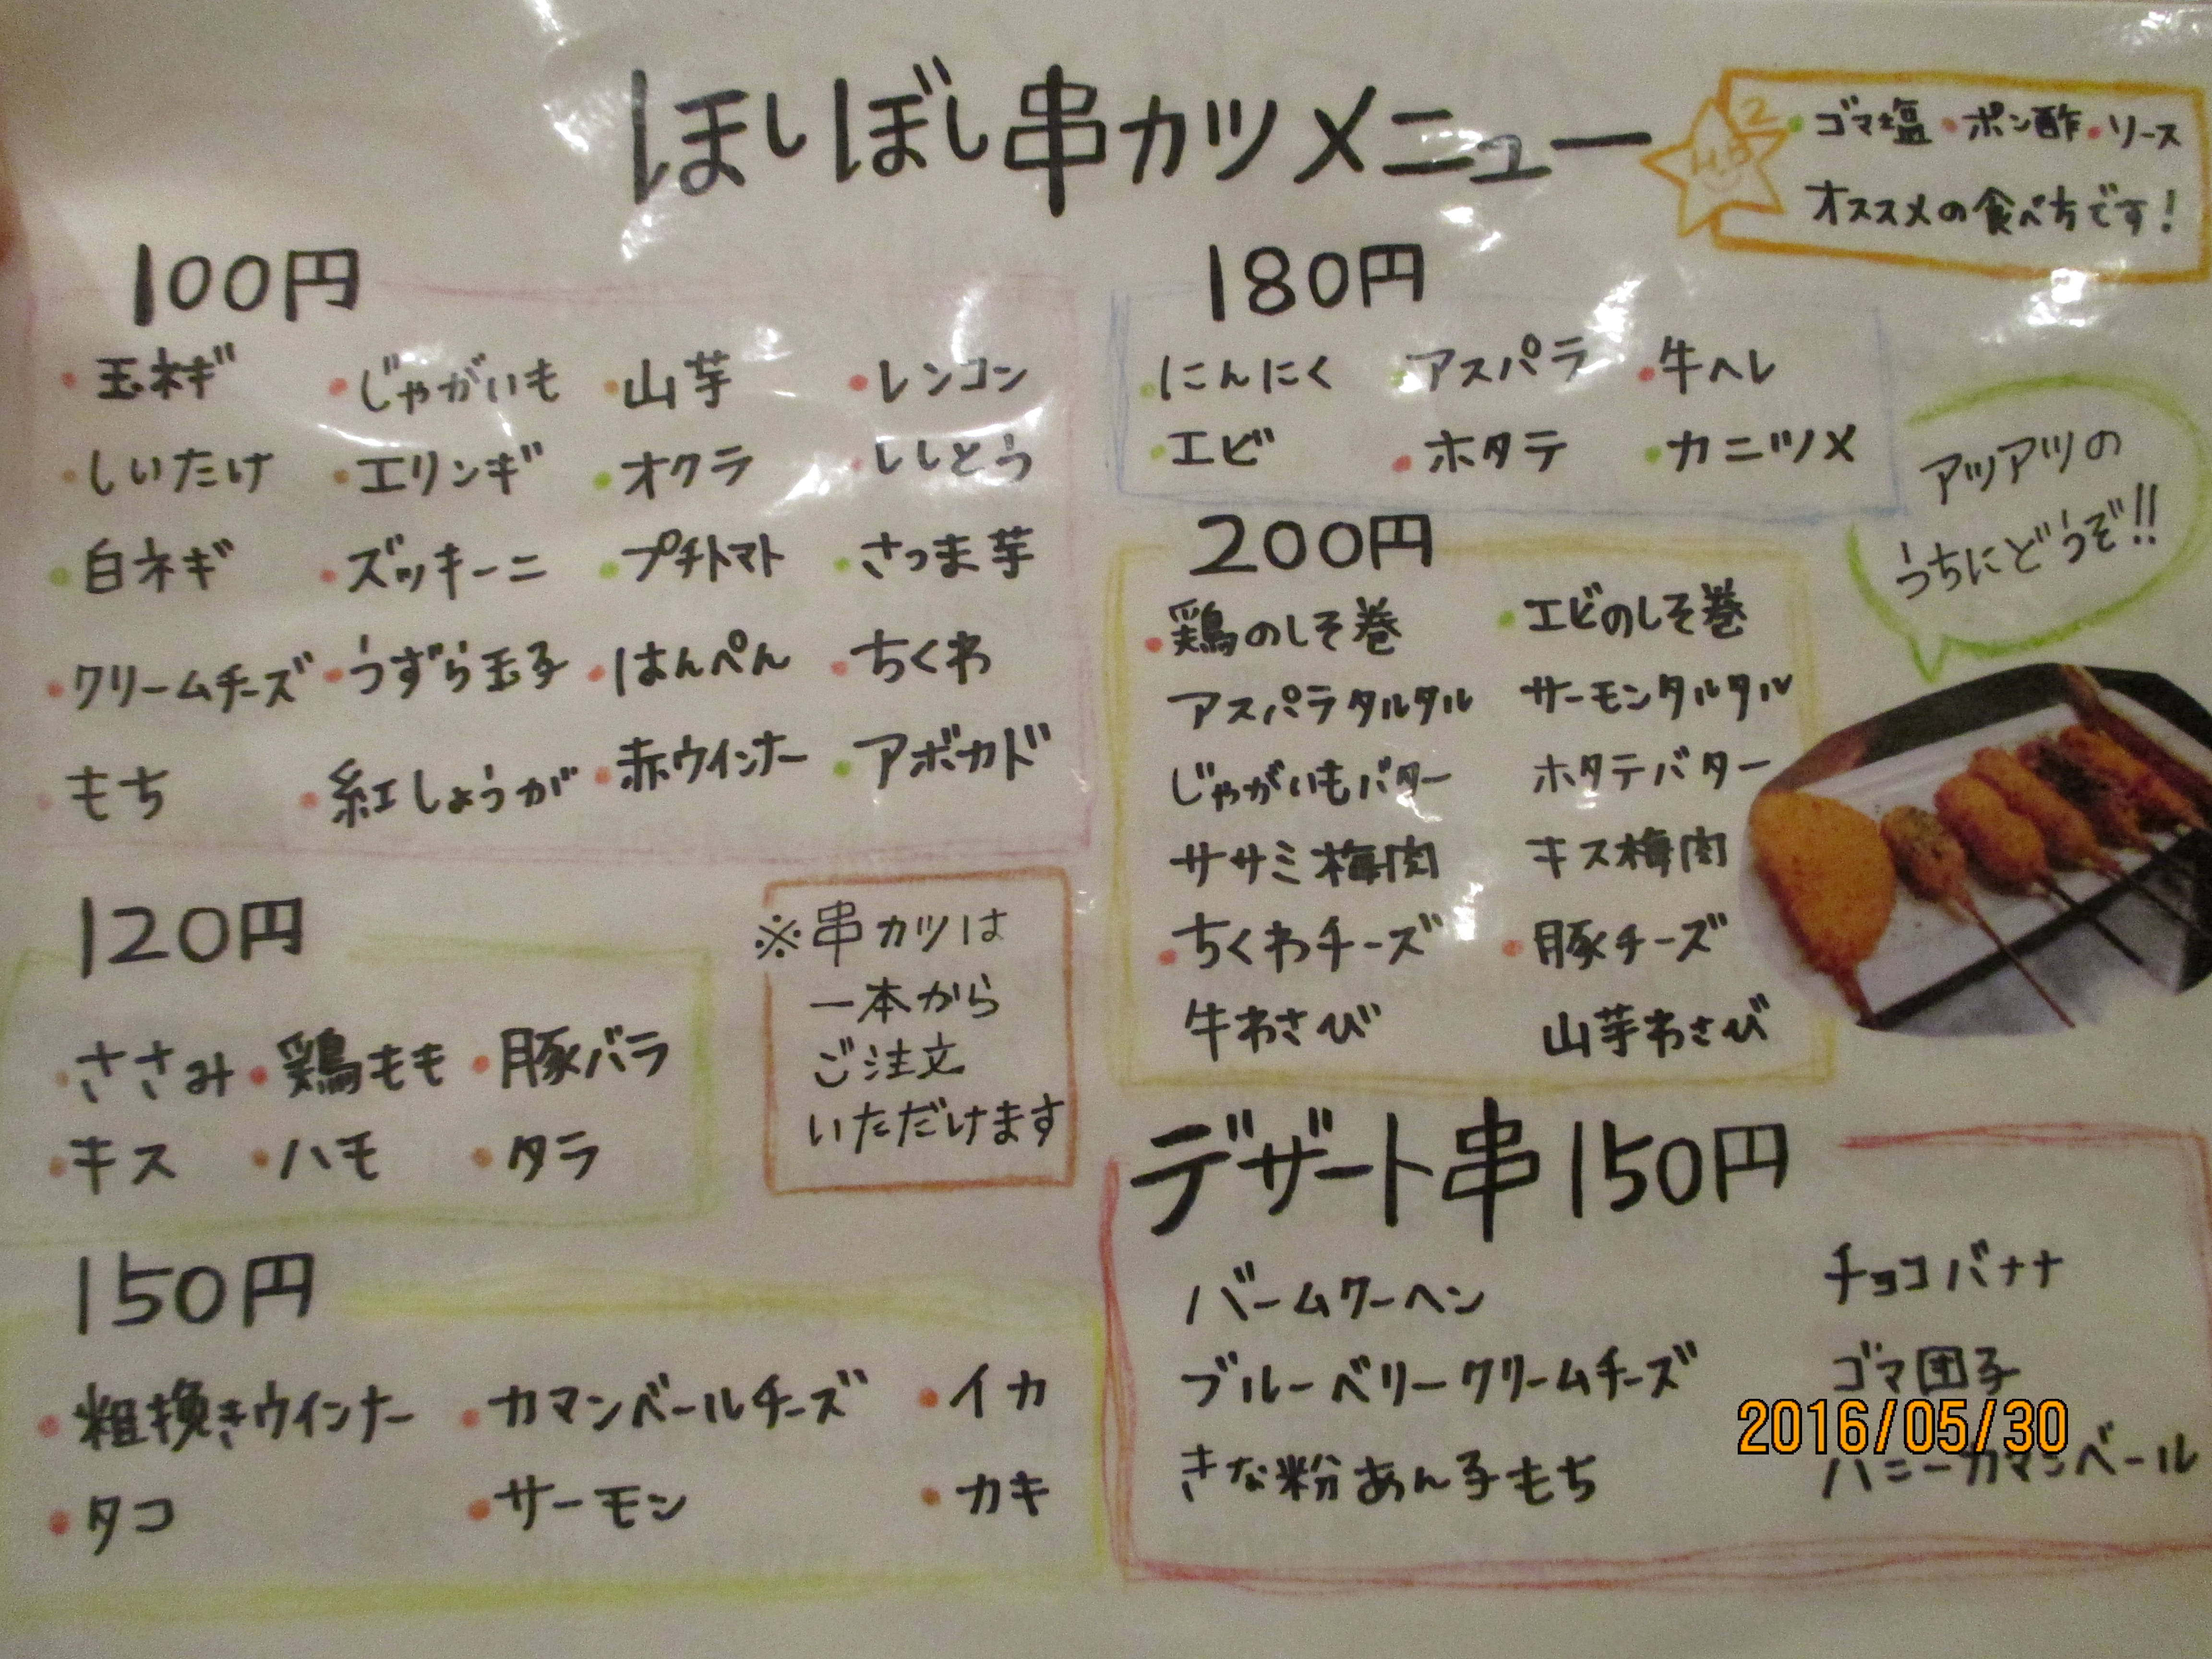 ほしぼし串カツメニュー
・ゴマ塩・ポン酢・ソース
オススメの食べ方です!
100円
・玉ネギ ・じゃがいも ・山芋 ・レンコン
・しいたけ ・エリンギ ・オクラ ・ししとう
・白ネギ ・ズッキーニ ・プチトマト ・さつま芋
・クリームチーズ ・うずら玉子 ・はんぺん ・ちくわ
・もち ・紅しょうが ・赤ウインナー ・アボカド
120円
・ささみ ・鶏もも ・豚バラ
・キス ・ハモ ・タラ
※串カツは
一本から
ご注文
いただけます
150円
・粗挽きウインナー ・カマンベールチーズ ・イカ
・タコ ・サーモン ・カキ
180円
・にんにく ・アスパラ ・牛ヘレ
・エビ ・ホタテ ・カニツメ
アツアツの
うちにどうぞ!!
200円
・鶏のしそ巻 ・エビのしそ巻
アスパラタルタル サーモンタルタル
じゃがいもバター ホタテバター
ササミ梅肉 キス梅肉
・ちくわチーズ ・豚チーズ
牛わさび 山芋わさび
デザート串150円
バームクーヘン チョコバナナ
ブルーベリークリームチーズ ゴマ団子
きな粉あん子もち ハニーカマンベール
2016/05/30